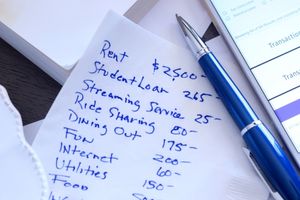 Rent $2500-
Student Loan 265-
Streaming Service 25-
Ride Sharing 80-
Dining Out 175-
Fun 200-
Internet 60-
Utilities 150-
Food 500-